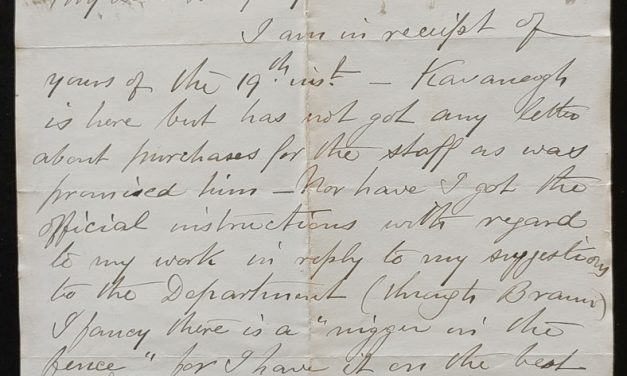 I am in receipt of
yours of the 19th inst. – Kavanaogh
is here but has not got any letter
about purchases for the staff as was
promised him – Nor have I got the
official instructions with regard
to my work in reply to my suggestions
to the Department (through Braun)
I fancy there is a "nigger in the
fence" for I have it on the best